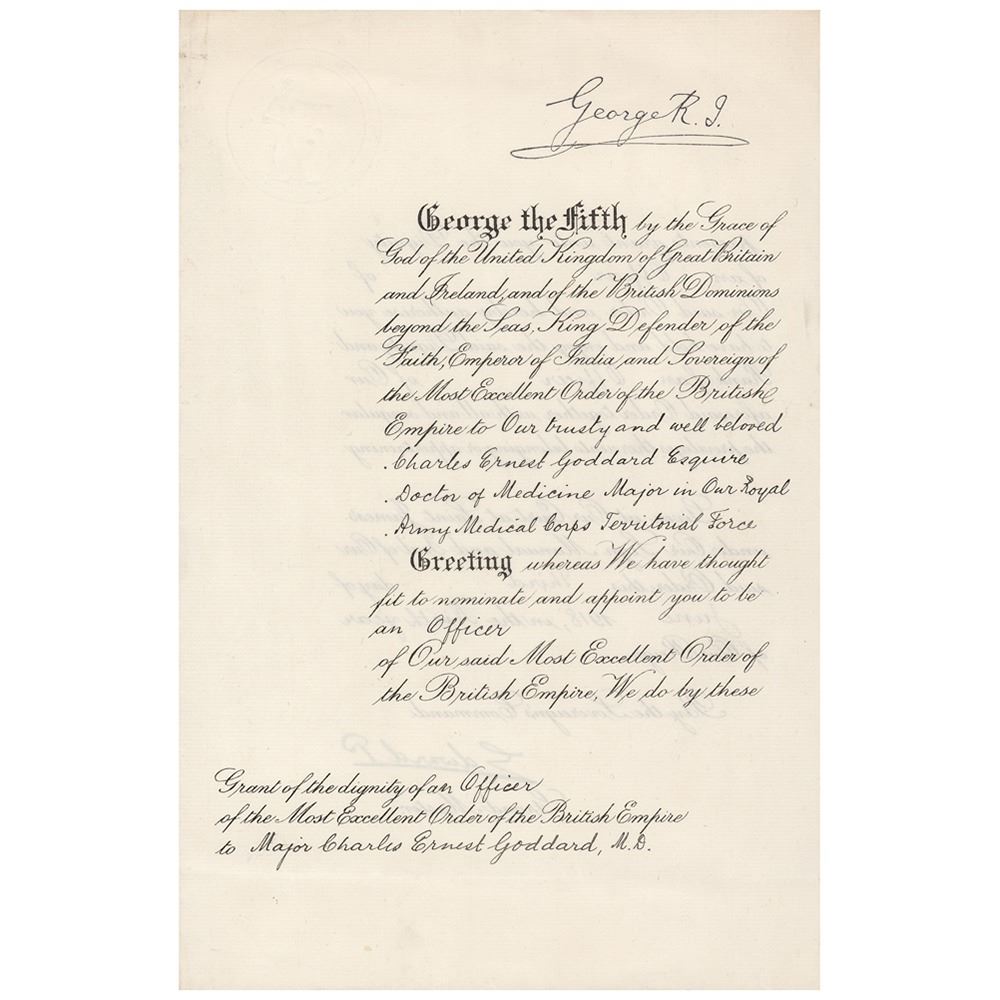 George R. I.
George the Fifth by the Grace of
God of the United Kingdom of Great Britain
and Ireland, and of the British Dominions
beyond the Seas, King Defender of the
Faith, Emperor of India and Sovereign of
the Most Excellent Order of the British
Empire to Our trusty and well beloved
Charles Ernest Goddard Esquire
Doctor of Medicine Major in Our Royal
Army Medical Corps Territorial Force
Greeting whereas We have thought
fit to nominate and appoint you to be
an Officer
of Our said Most Excellent Order of
the British Empire, We do by these
Grant of the dignity of an Officer
of the Most Excellent Order of the British Empire
to Major Charles Ernest Goddard, M.D.